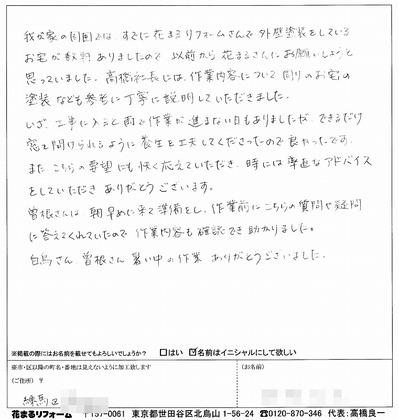 我が家の周囲では、すでに花まるリフォームさんで外壁塗装をしている
お宅が数軒ありましたので以前から花まるさんにお願いしようと
思っていました。高橋社長には、作業内容について周りのお宅の
塗装なども参考に丁寧に説明していただきました。
いざ、工事に入ると雨で作業が進まない日もありましたが、できるだけ
窓を開けられるように養生を工夫してくださったので良かったです。
また、こちらの要望にも快く応えていただき、時には率直なアドバイス
をしていただきありがとうございます。
曽根さんは朝早めに来て準備をし、作業前にこちらの質問や疑問
に答えてくれていたので作業内容も確認でき助かりました。
白鳥さん、曽根さん暑い中の作業ありがとうございました。
※掲載の際にはお名前を載せてもよろしいでしょうか? □はい ☑名前はイニシャルにして欲しい
※市・区以降の町名・番地は見えないように加工致します
(ご住所) 〒
(お名前)
練馬区
花まるリフォーム 〒157-0061 東京都世田谷区北烏山 1-56-24 ☎0120-870-346 代表:高橋良一